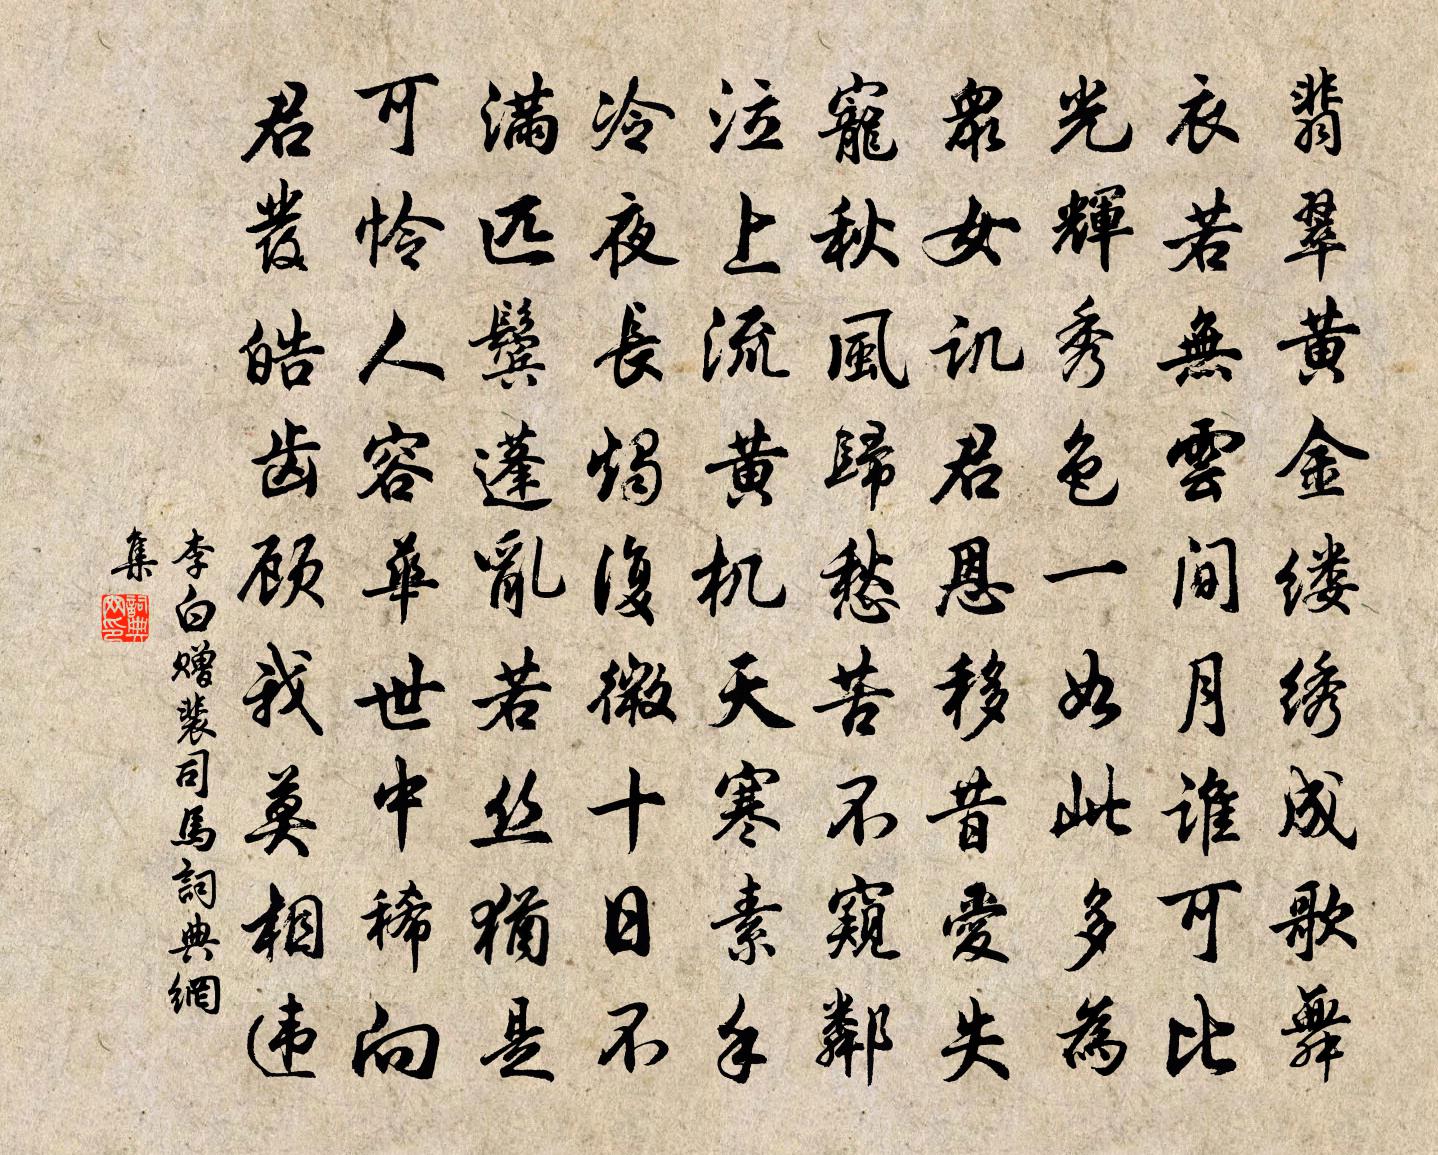 翡翠黄金缕绣成歌舞
衣若無雲間月谁可比
光輝秀色一如此多為
衆女讥君恩移昔愛失
寵秋風歸愁苦不窺鄰
泣上流黄机天寒素手
冷夜長燭復微十日不
满匹鬓蓬亂若丝猶是
可怜人容華世中稀向
君發皓齿顾我莫相违
李白赠裴司馬詞典網
集
詞典
网印